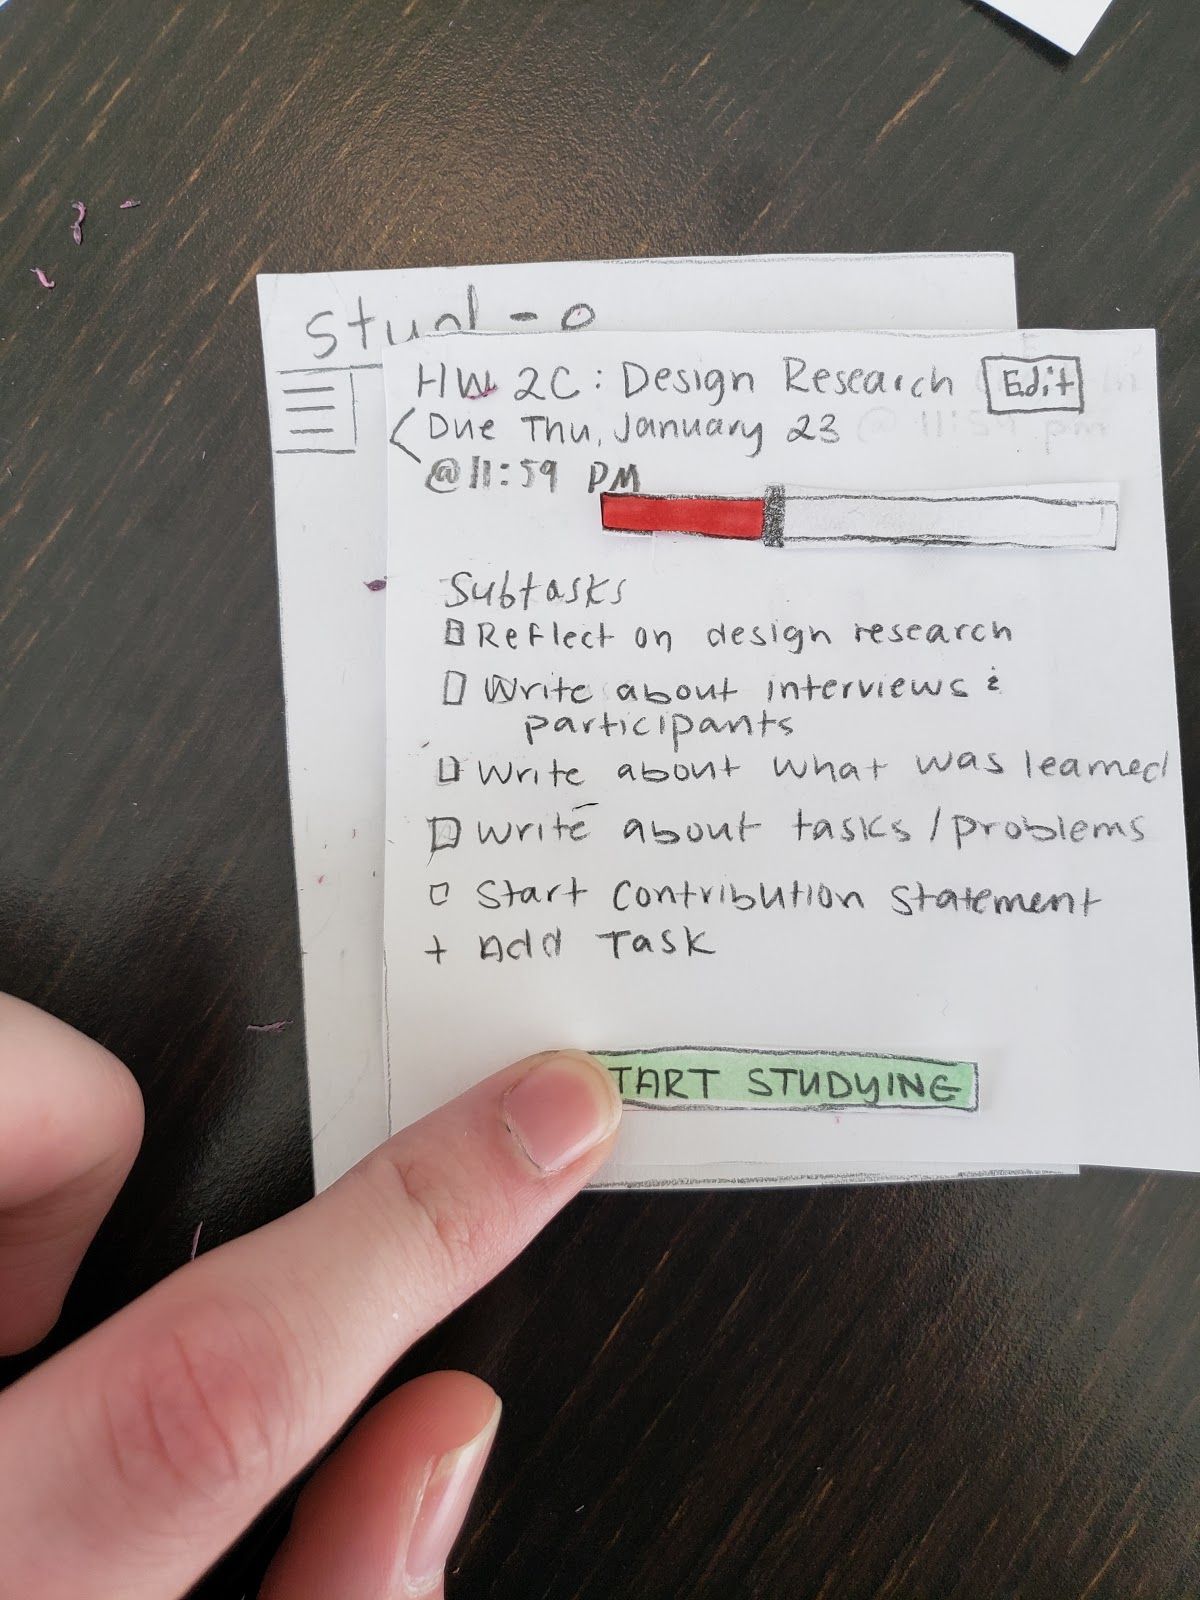 HW 2C: Design Research Edit
< Due Thu, January 23
@11:59 PM
Subtasks
Reflect on design research
Write about interviews &
participants
Write about what was learned
Write about tasks/problems
Start contribution statement
+ Add Task
TART STUDYING